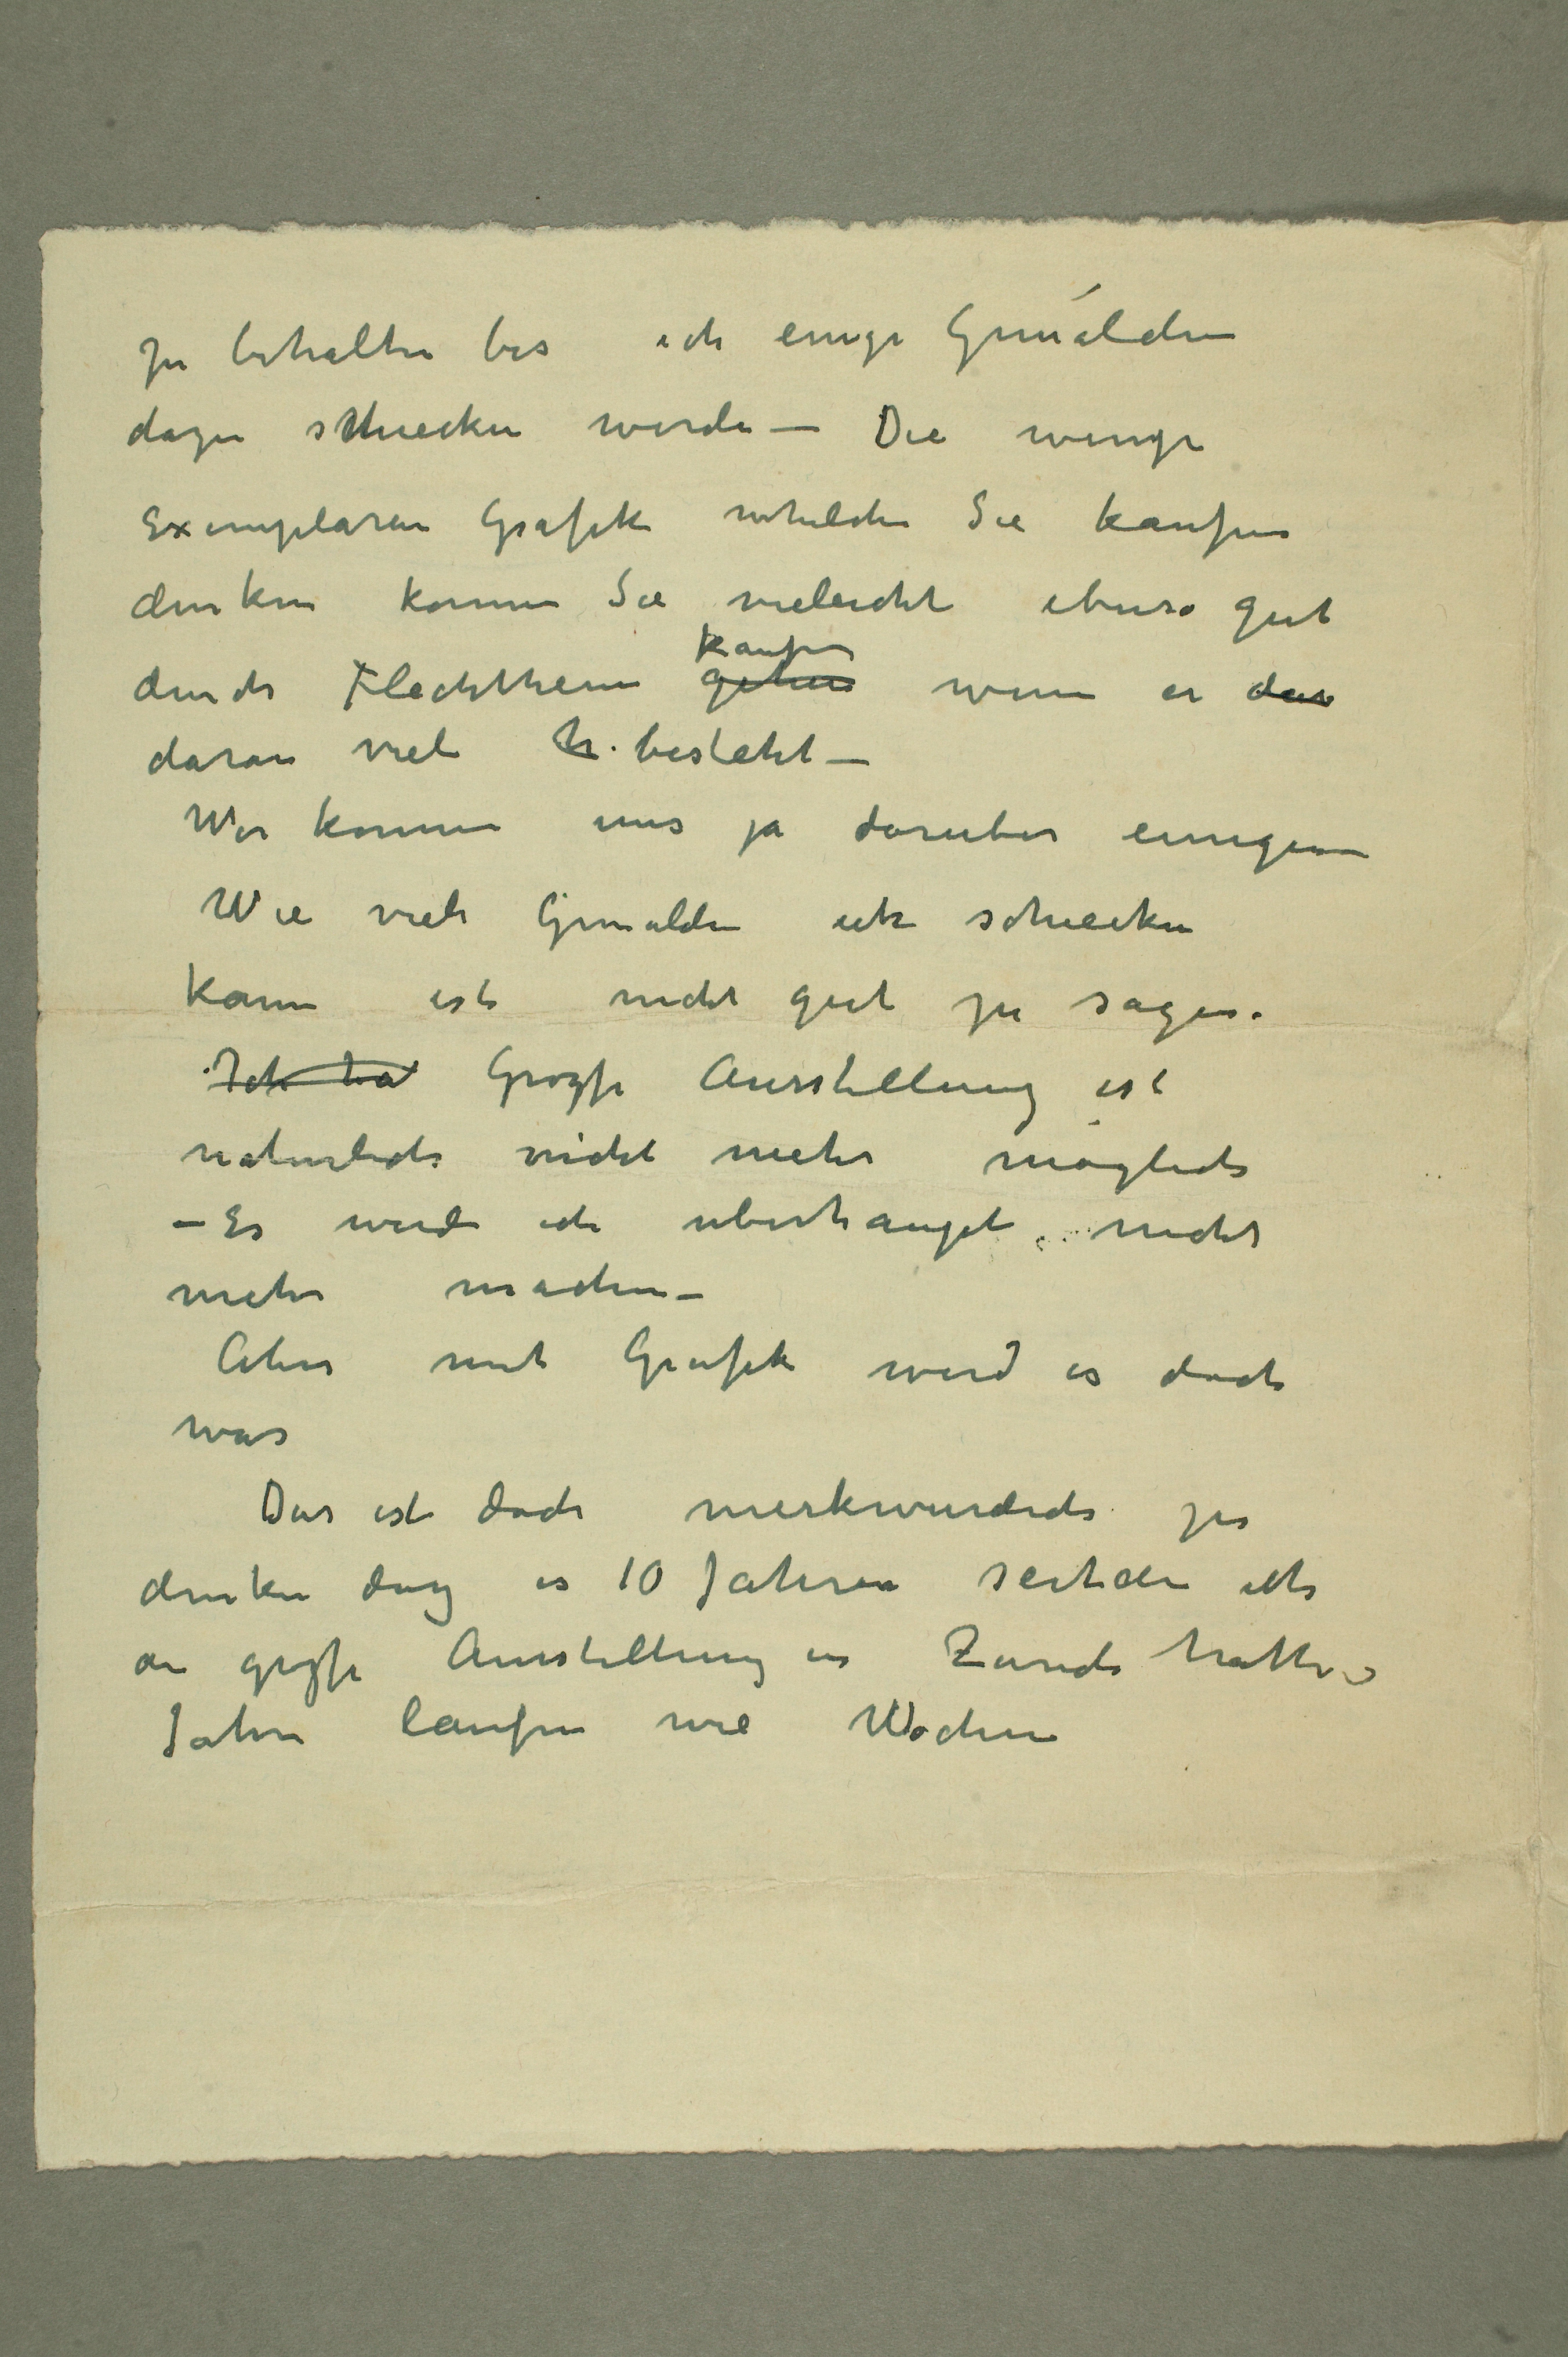 zu behalten bis ich einige Gemälden
dazu schiecken werde — Die wenige
Exemplaren Grafik whelche Sie kaufen
denken konnen Sie vieleicht ebenso gut
durch Flechtheim gehen kaufen wenn er das
daran viel h. besteht —
Wir konnen uns ja daruber einigen —
Wie viele Gemalden ich schiecken
kann ist nicht gut zu sagen.
Ich ha Grozse Ausstellung ist
naturlich nicht mehr möglich
– Es werde ich uberhaupt nicht
mehr machen –
Aber mit Grafik wird es doch
was
Das ist doch merkwurdich zu
denken daz es 10 Jahren seitden ich
die grozse Ausstellung in Zurich hatte –
Jahre laufen wie Wochen